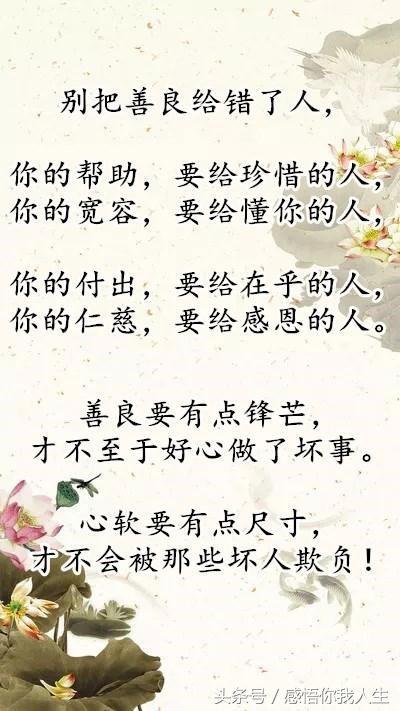 别把善良给错了人，
你的帮助，要给珍惜的人，
你的宽容，要给懂你的人，
你的付出，要给在乎的人，
你的仁慈，要给感恩的人。
善良要有点锋芒，
才不至于好心做了坏事。
心软要有点尺寸，
才不会被那些坏人欺负！
头条号/感悟你我人生